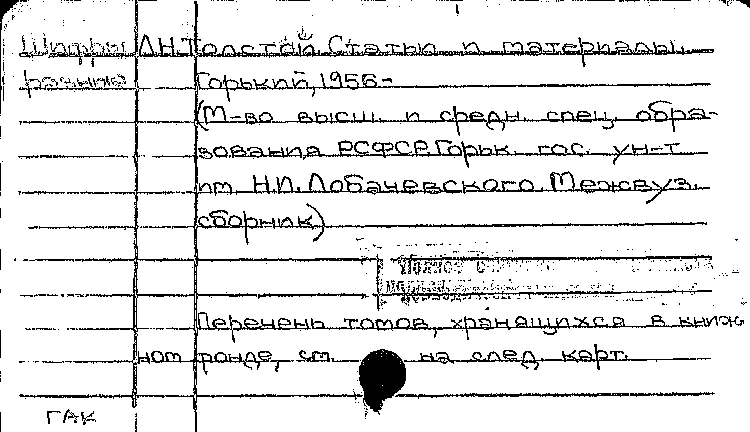 Шифры Л.Н.Толстой. Статьи и материалы.
разные Горький, 1956-
(М-во высш. и средн. спец. обра-
зования РСФСР. Горьк. гос. ун-т
им. Н.И. Лобачевского. Межвуз.
сборник)
Перечень томов, хранящихся в книж
ном фонде, см. на след. карт.
ГАК